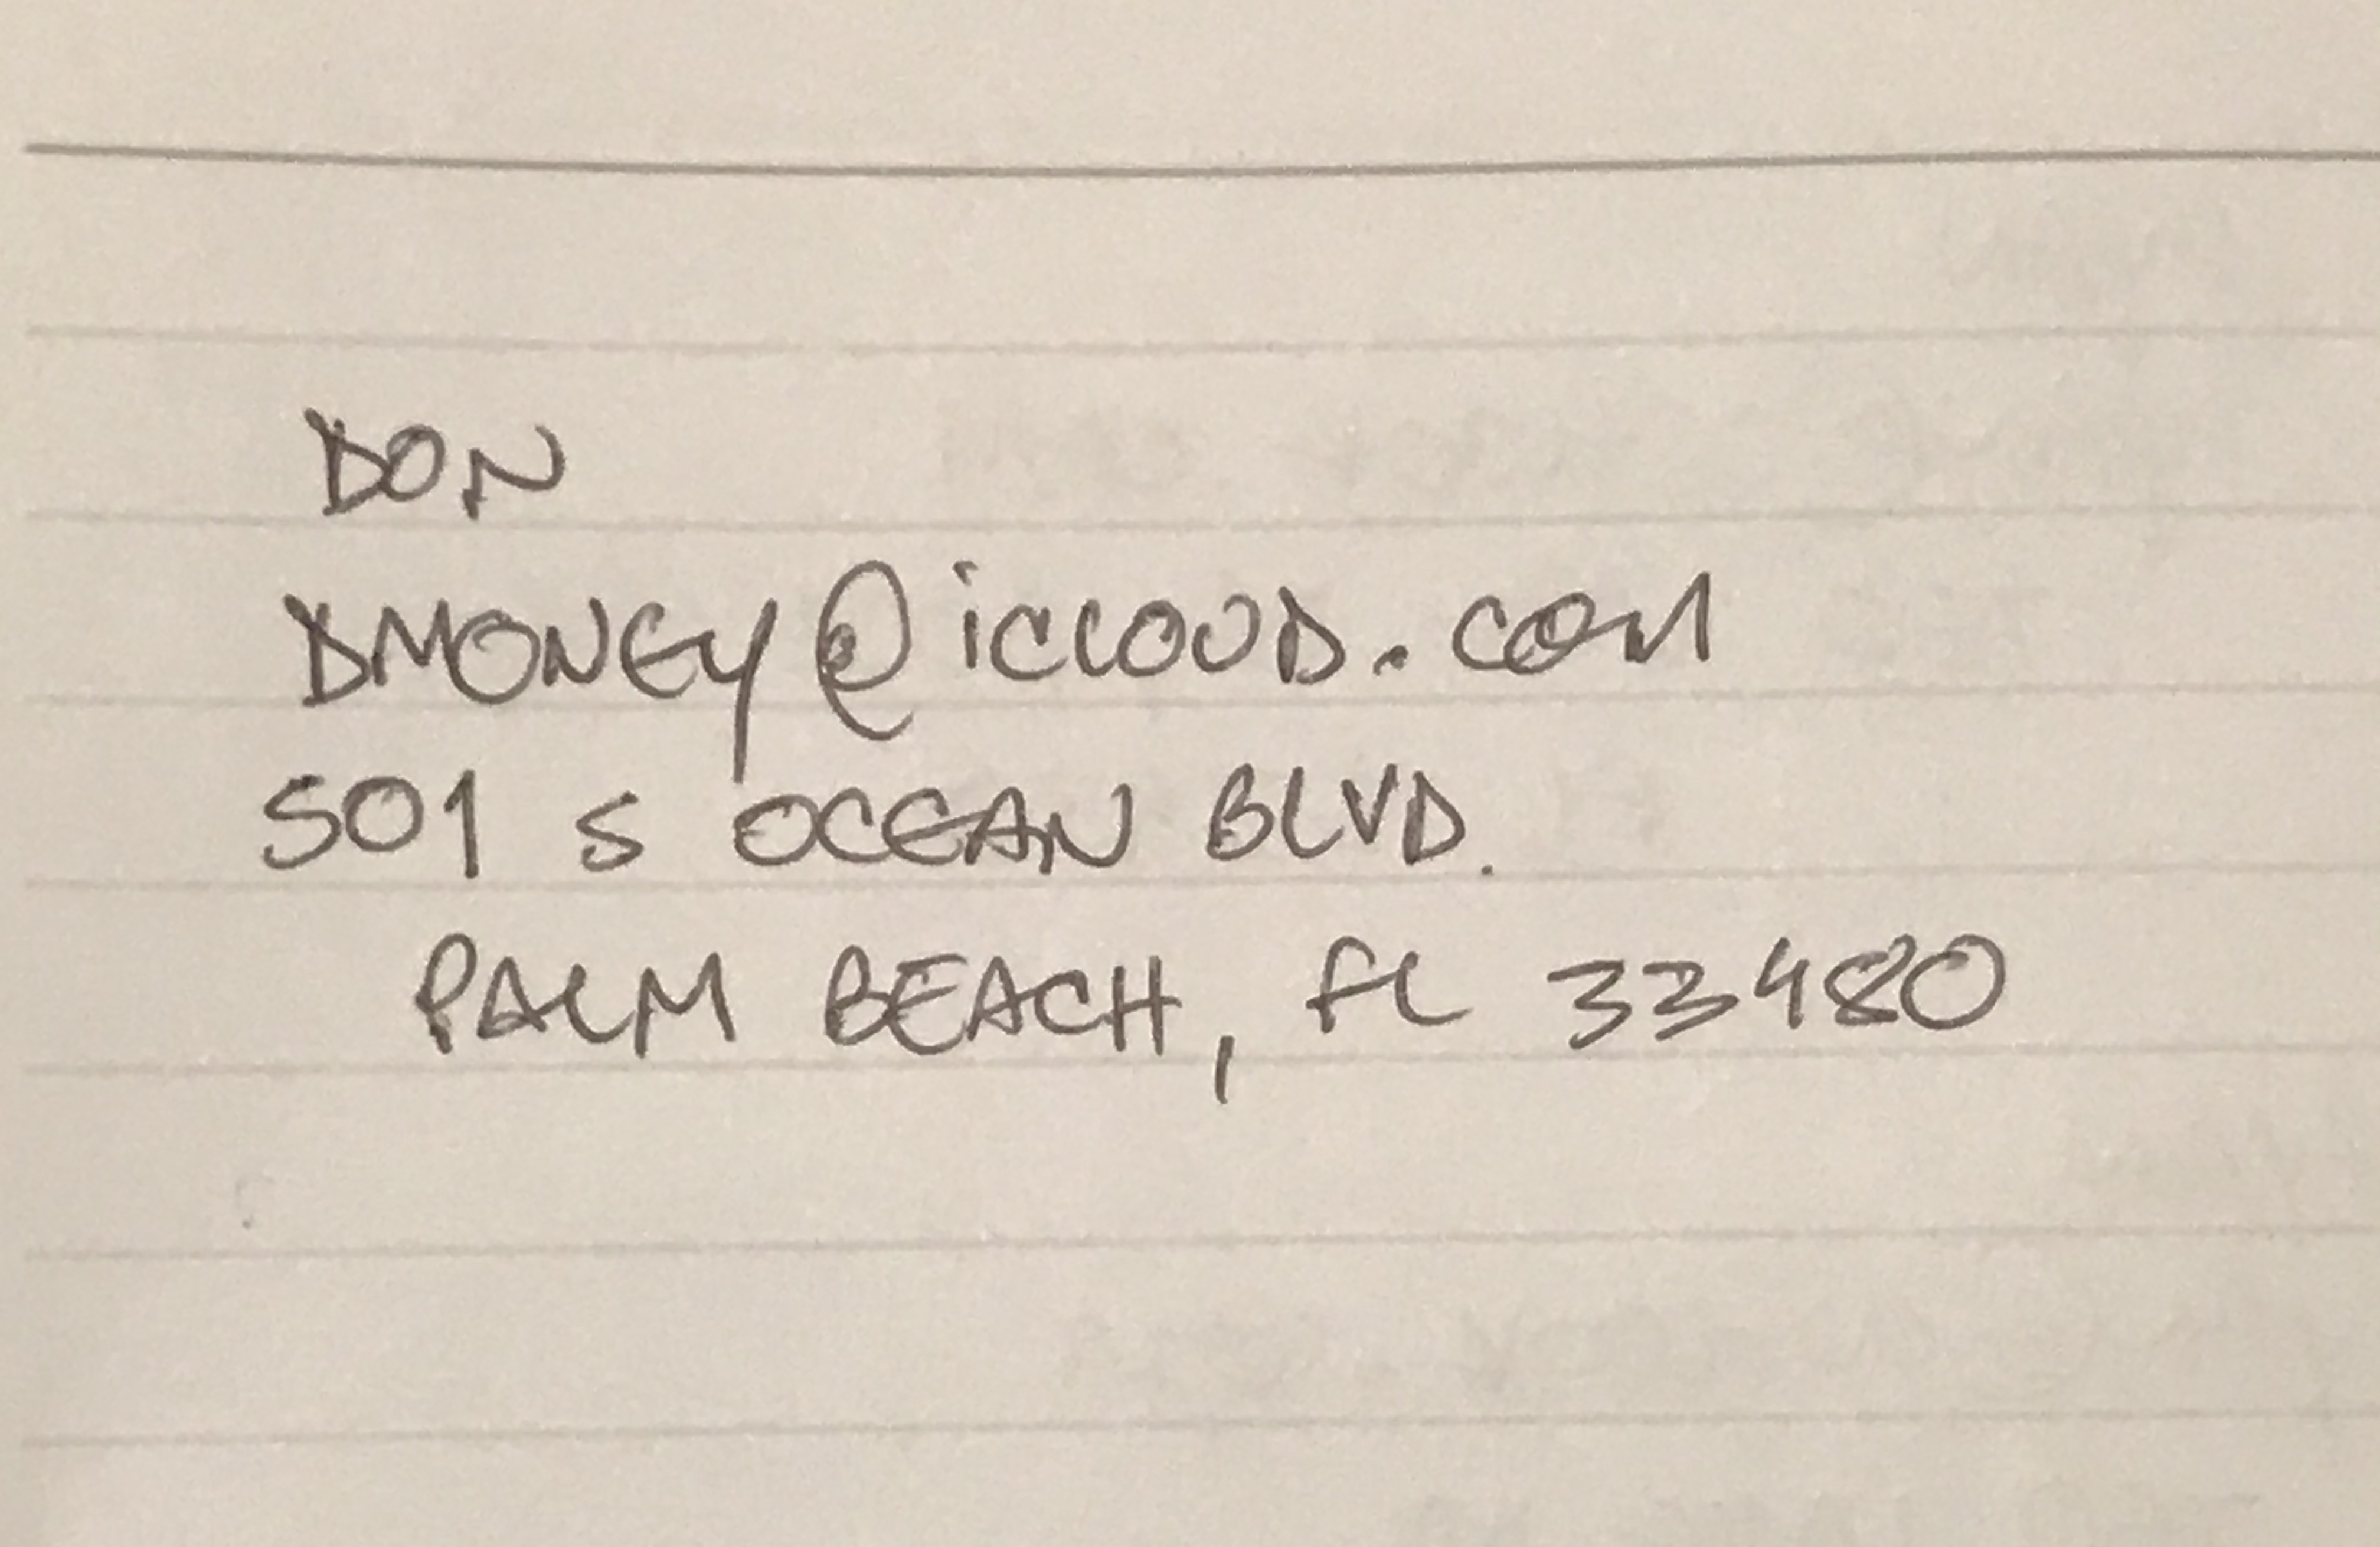 DON
DMONEY@iCLOUD.COM
501 S OCEAN BLVD.
PALM BEACH, FL 33480